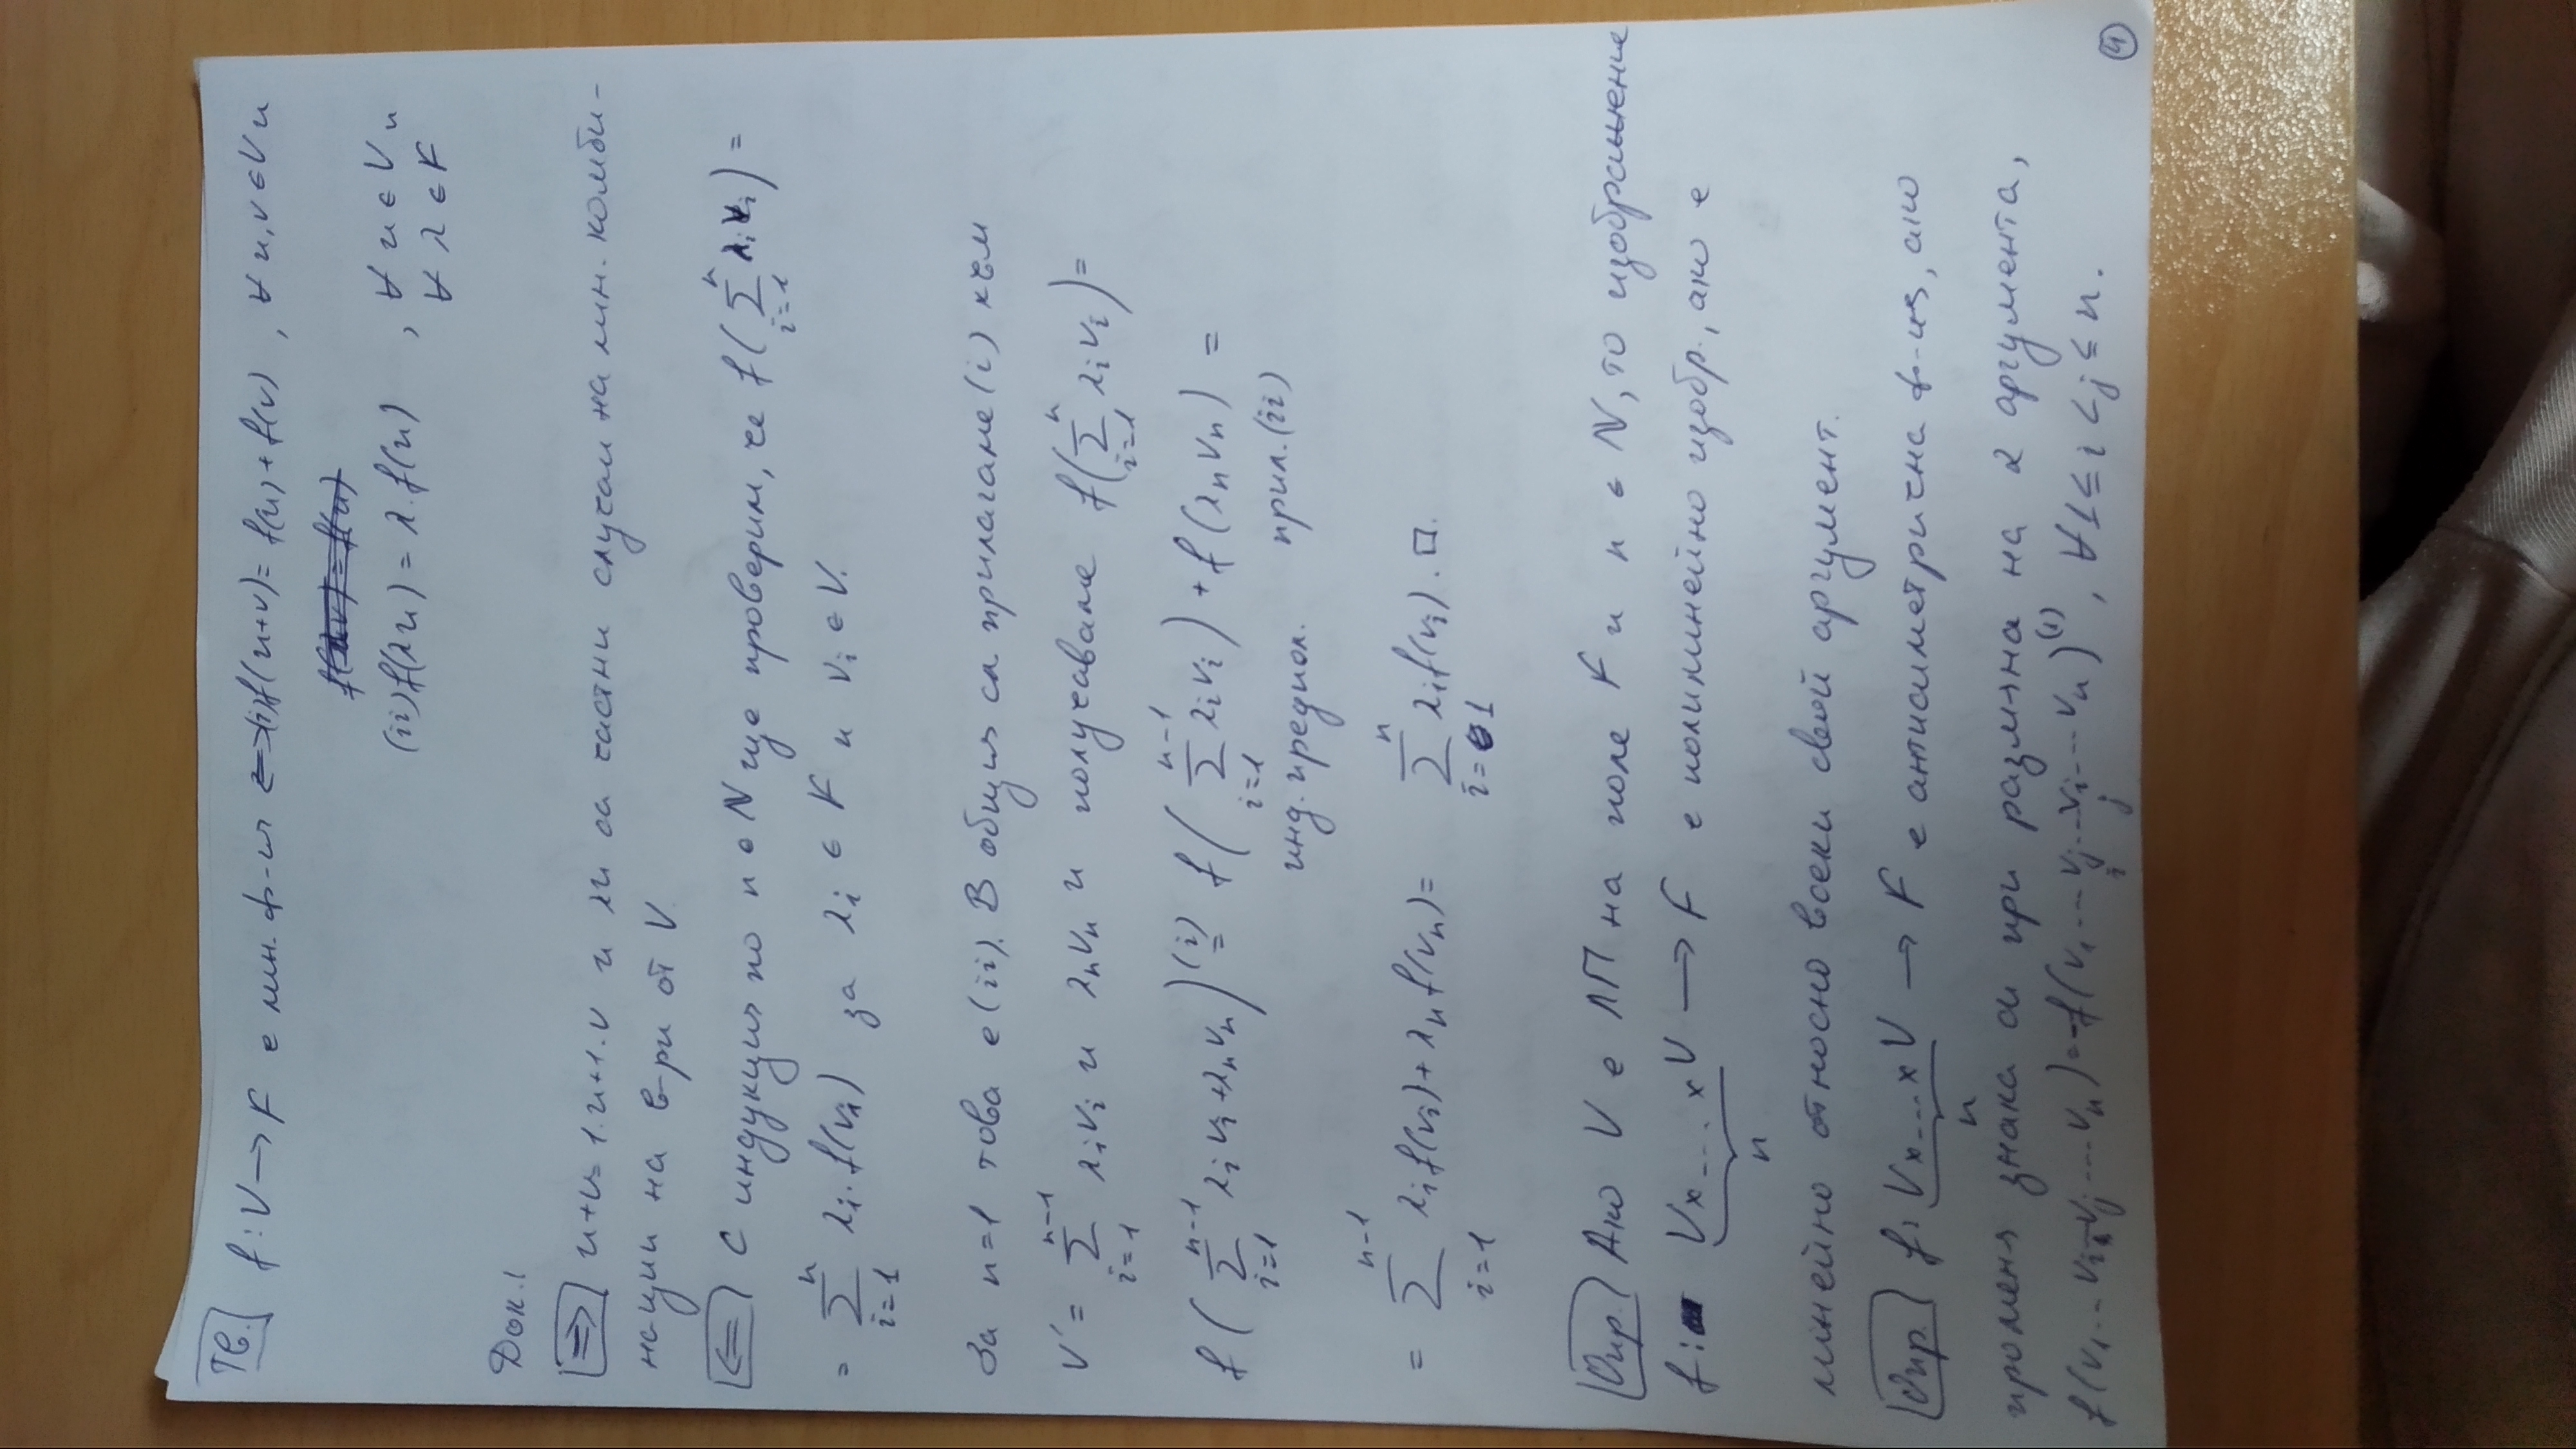 Тв. f: V → F е лин. ф-я <=> (i) f(u+v) = f(u) + f(v), ∀ u, v ∈ V и
(ii) f(λu) = λ.f(u), ∀ u ∈ V и
∀ λ ∈ F
Док.
=> u+v = 1.u+1.v и λu са частни случаи на лин. комби-
нации на в-ри от V.
<= С индукция по n ∈ N ще проверим, че f(∑_{i=1}^{n} λ_i v_i) =
= ∑_{i=1}^{n} λ_i.f(v_i) за λ_i ∈ F и v_i ∈ V.
За n=1 това е (ii). В общия сл прилагане (i) към
v' = ∑_{i=1}^{n-1} λ_i v_i и λ_n v_n и получаваме f(∑_{i=1}^{n} λ_i v_i) =
f(∑_{i=1}^{n-1} λ_i v_i + λ_n v_n) (i)= f(∑_{i=1}^{n-1} λ_i v_i) + f(λ_n v_n) =
инд. предпол. прил. (ii)
= ∑_{i=1}^{n-1} λ_i f(v_i) + λ_n f(v_n) = ∑_{i=1}^{n} λ_i f(v_i). □.
Опр. Ако V е ЛП на поле F и n ∈ N, то изображение
f: V x ... x V → F е полилинейно изобр., ако е
n
линейно относно всеки свой аргумент.
Опр. f: V x ... x V → F е антисиметрична ф-ия, ако
n
променя знака си при размяна на 2 аргумента,
f(v_1 ... v_i ... v_j ... v_n) = -f(v_1 ... v_j ... v_i ... v_n)^{(1)}, ∀ 1 ≤ i < j ≤ n.
i j
4